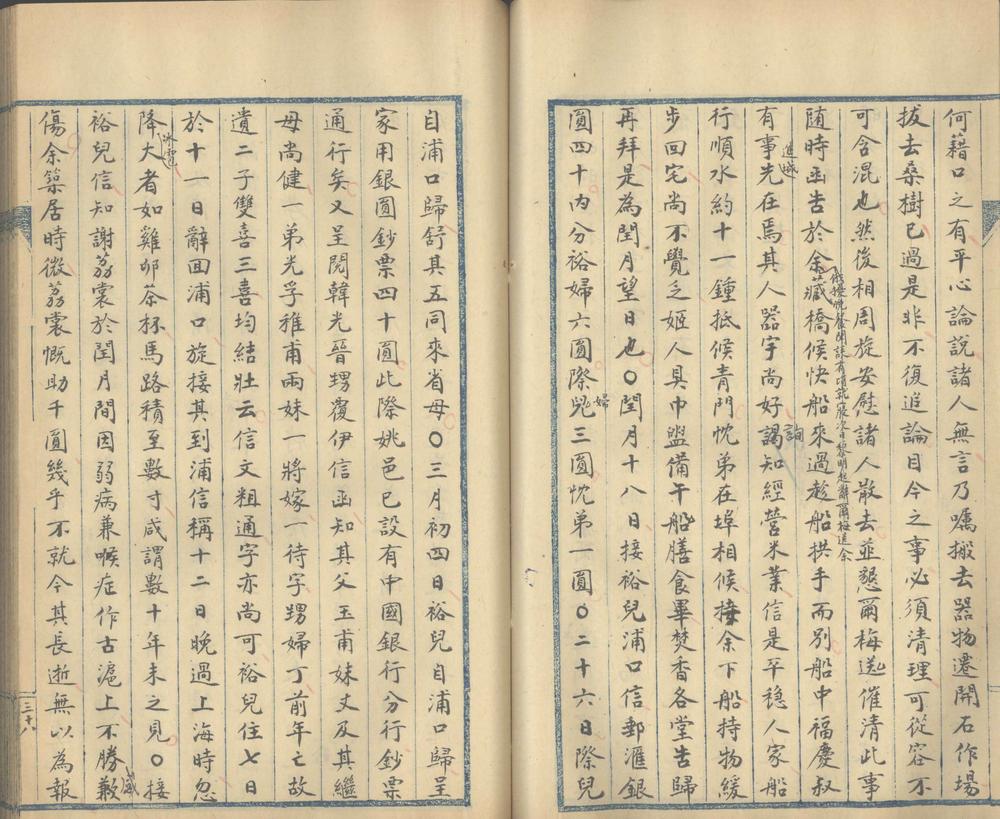 何藉口之有平心論說諸人無言乃囑搬去器物遷開石作場
拔去桑樹已過是非不復追論目今之事必須清理可從容不
可含混也然後相周旋安慰諸人散去並懇爾梅送催清此事
隨時函告於余藏橋候快船來過趁船拱手而別船中福慶叔
俄擾晚餐閒談有頃就寢次日黎明起辭爾梅送余
有事先在焉其人器宇尚好謁知經營米業信是平穩人家船
進城
詢
行順水約十一鍾抵候青門忱弟在埠相候接余下船持物緩
步回宅尚不覺乏姬人具巾盥備午船膳食畢焚香各堂告歸
再拜是為閏月望日也〇閏月十八日接裕兒浦口信郵滙銀
圓四十內分裕婦六圓際兒三圓忱弟一圓〇二十六日際兒
婦
自浦口歸舒其五同來省母〇三月初四日裕兒自浦口歸呈
家用銀圓鈔票四十圓此際姚邑已設有中國銀行分行鈔票
通行矣又呈閱韓光晉甥覆伊信函知其父玉甫妹丈及其繼
母尚健一弟光孚雅甫兩妹一將嫁一待字甥婦丁前年亡故
遺二子雙喜三喜均結壯云信文粗通字亦尚可裕兒住七日
於十一日辭回浦口旋接其到浦信稱十二日晚過上海時忽
降大者如雞卵茶杯馬路積至數寸咸謂數十年未之見〇接
冰雹
裕兒信知謝荔裳於閏月間因弱病兼喉症作古滬上不勝歉
感
傷余築居時微荔裳慨助千圓幾乎不就今其長逝無以為報
三十八